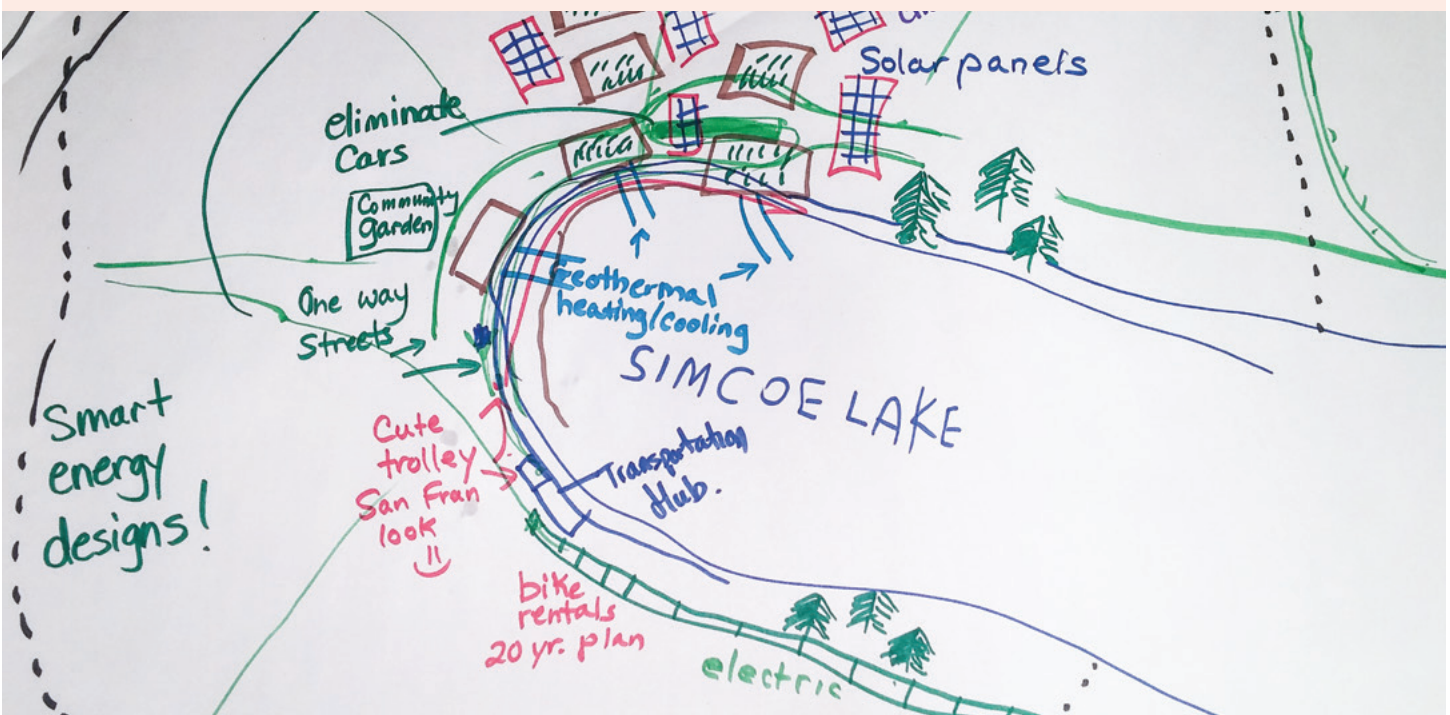 Solar panels
eliminate
Cars
Community
Garden
Geothermal
heating/cooling
One way
Streets
SIMCOE LAKE
Smart
energy
designs!
Cute
trolley
San Fran
look
Transportation
Hub.
bike
rentals
20 yr. plan
electric